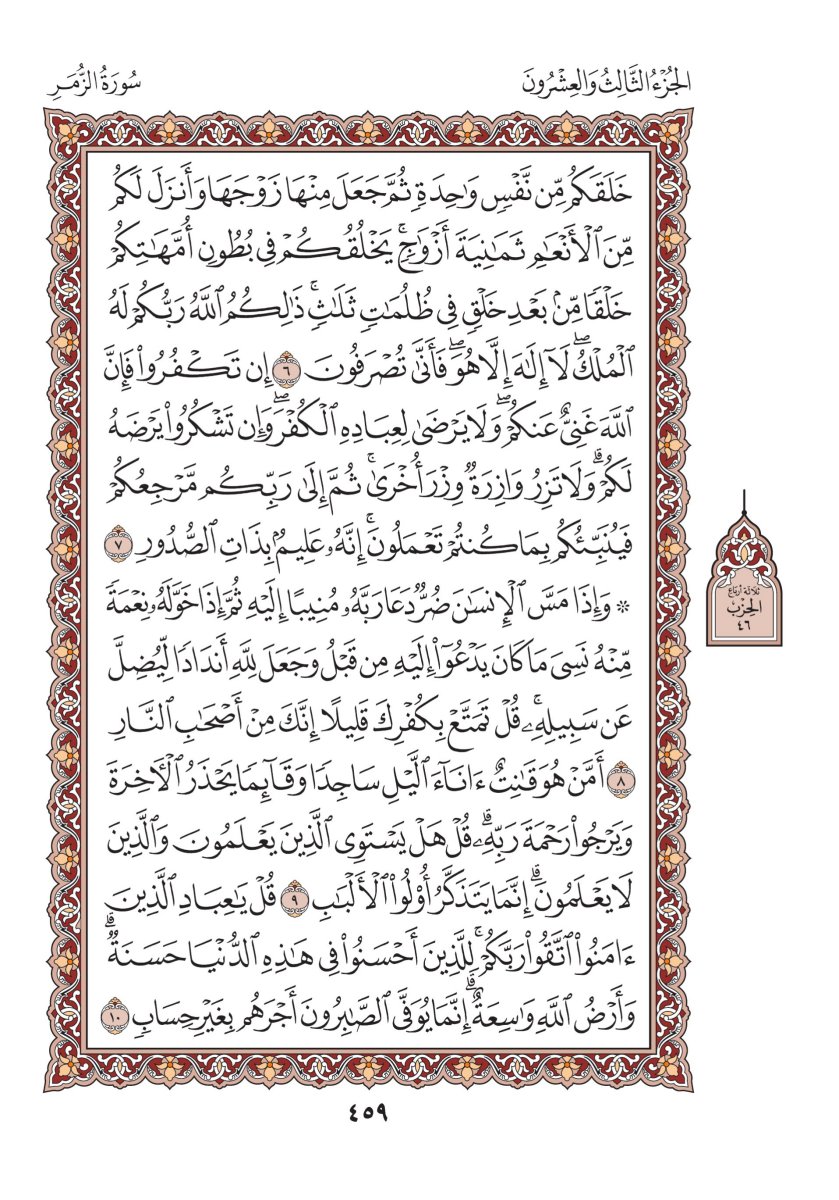 الجُزْءُ الثَّالِثُ وَالعِشْرُونَ
سُورَةُ الزُّمَرِ
خَلَقَكُم مِّن نَّفْسٖ وَٰحِدَةٖ ثُمَّ جَعَلَ مِنْهَا زَوْجَهَا وَأَنزَلَ لَكُم
مِّنَ ٱلْأَنْعَٰمِ ثَمَٰنِيَةَ أَزْوَٰجٖۚ يَخْلُقُكُمْ فِي بُطُونِ أُمَّهَٰتِكُمْ
خَلْقٗا مِّنۢ بَعْدِ خَلْقٖ فِي ظُلُمَٰتٖ ثَلَٰثٖۚ ذَٰلِكُمُ ٱللَّهُ رَبُّكُمْ لَهُ
ٱلْمُلْكُۖ لَآ إِلَٰهَ إِلَّا هُوَۖ فَأَنَّىٰ تُصْرَفُونَ ٦ إِن تَكْفُرُوا۟ فَإِنَّ
ٱللَّهَ غَنِيٌّ عَنكُمْۖ وَلَا يَرْضَىٰ لِعِبَادِهِ ٱلْكُفْرَۖ وَإِن تَشْكُرُوا۟ يَرْضَهُ
لَكُمْۗ وَلَا تَزِرُ وَازِرَةٞ وِزْرَ أُخْرَىٰۚ ثُمَّ إِلَىٰ رَبِّكُم مَّرْجِعُكُمْ
فَيُنَبِّئُكُم بِمَا كُنتُمْ تَعْمَلُونَۚ إِنَّهُۥ عَلِيمُۢ بِذَاتِ ٱلصُّدُورِ ٧
۞ وَإِذَا مَسَّ ٱلْإِنسَٰنَ ضُرّٞ دَعَا رَبَّهُۥ مُنِيبًا إِلَيْهِ ثُمَّ إِذَا خَوَّلَهُۥ نِعْمَةٗ
مِّنْهُ نَسِيَ مَا كَانَ يَدْعُوٓا۟ إِلَيْهِ مِن قَبْلُ وَجَعَلَ لِلَّهِ أَندَادٗا لِّيُضِلَّ
عَن سَبِيلِهِۦۚ قُلْ تَمَتَّعْ بِكُفْرِكَ قَلِيلًا إِنَّكَ مِنْ أَصْحَٰبِ ٱلنَّارِ
٨ أَمَّنْ هُوَ قَٰنِتٌ ءَانَآءَ ٱلَّيْلِ سَاجِدٗا وَقَآئِمٗا يَحْذَرُ ٱلْأٓخِرَةَ
وَيَرْجُوا۟ رَحْمَةَ رَبِّهِۦۗ قُلْ هَلْ يَسْتَوِي ٱلَّذِينَ يَعْلَمُونَ وَٱلَّذِينَ
لَا يَعْلَمُونَۗ إِنَّمَا يَتَذَكَّرُ أُو۟لُوا۟ ٱلْأَلْبَٰبِ ٩ قُلْ يَٰعِبَادِ ٱلَّذِينَ
ءَامَنُوا۟ ٱتَّقُوا۟ رَبَّكُمْۚ لِلَّذِينَ أَحْسَنُوا۟ فِي هَٰذِهِ ٱلدُّنْيَا حَسَنَةٞۗ
وَأَرْضُ ٱللَّهِ وَٰسِعَةٌۗ إِنَّمَا يُوَفَّى ٱلصَّٰبِرُونَ أَجْرَهُم بِغَيْرِ حِسَابٖ ١٠
ثلاثة أرباع
الحِزْبِ
٤٦
٤٥٩